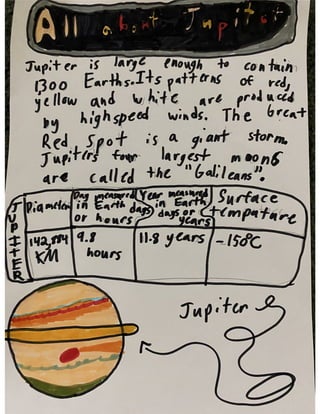 All about Jupiter
Jupiter is large enough to contain
1300 Earths. Its patterns of red,
yellow and white are produced
by highspeed winds. The Great
Red Spot is a giant storm.
Jupiters four largest moons
are called the "Galileans".
JUPITER
Diameter
Day measured in Earth days or hours
Year measured in Earth days or years
Surface tempature
142,884 KM
9.8 hours
11.8 years
-150°C
Jupiter